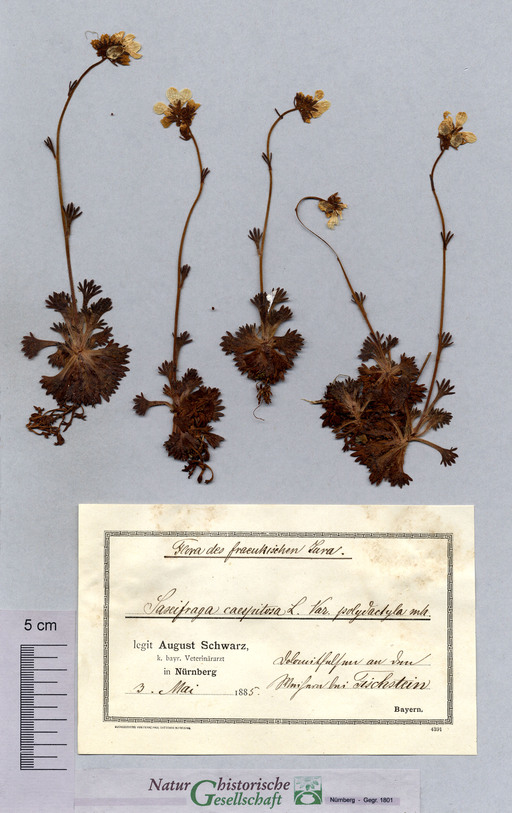 Flora des fraenkischen Jura.
Saxifraga caespitosa L. Var. polydactyla mh.
legit August Schwarz,
k. bayr. Veterinärarzt
in Nürnberg
3. Mai 1885.
Dolomitfelsen an den
Weihern bei Fischstein
Bayern.
4391
5 cm
Naturhistorische
Gesellschaft
Nürnberg - Gegr. 1801